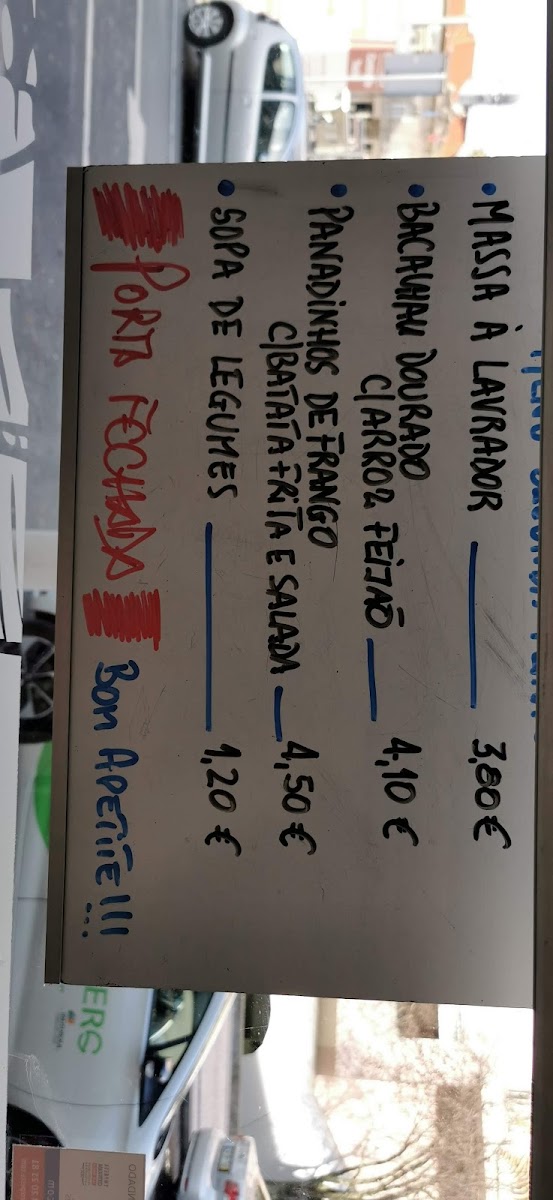 MENU SEGUNDA FEIRA
• MASSA À LAVRADOR — 3,80 €
• BACALHAU DOURADO
C/ARROZ FEIJÃO — 4,10 €
• PANADINHOS DE FRANGO
C/BATATA FRITA E SALADA — 4,50 €
• SOPA DE LEGUMES — 1,20 €
PORTA FECHADA BOM APETITE!!!
ERS